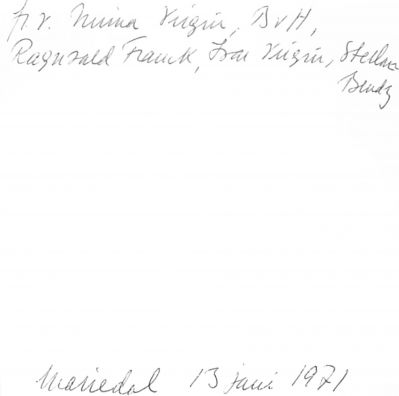 fr v. Minna Virgin, B v H,
Ragnvald Franck, Ivar Virgin, Stellan
Bendz
Mariedal 13 juni 1971